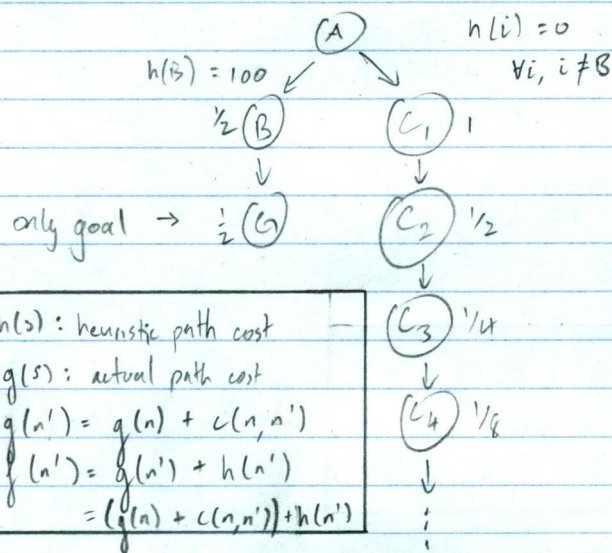 A
h(i) = 0
∀i, i ≠ B
h(B) = 100
½ B
C₁ 1
only goal → ½ G
C₂ 1/2
C₃ 1/4
C₄ 1/8
h(s) : heuristic path cost
g(s) : actual path cost
g(n') = g(n) + c(n,n')
f(n') = g(n') + h(n')
= (g(n) + c(n,n')) + h(n')